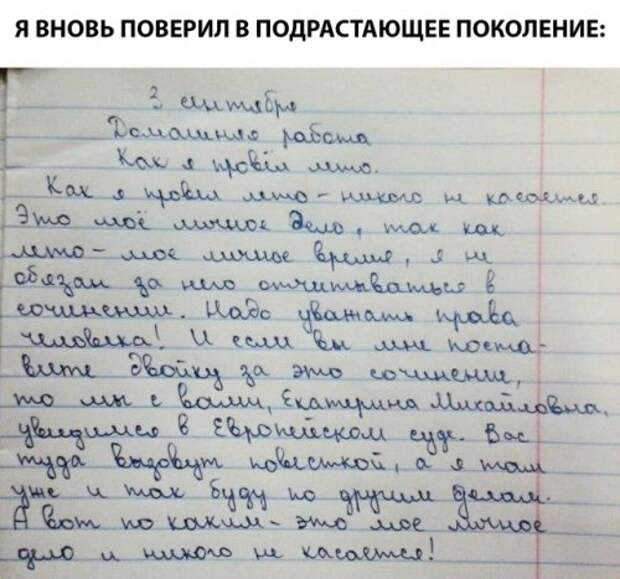 Я ВНОВЬ ПОВЕРИЛ В ПОДРАСТАЮЩЕЕ ПОКОЛЕНИЕ:
3 сентября
Домашняя работа
Как я провёл лето.
Как я провел лето – никого не касается.
Это моё личное дело, так как
лето – мое личное время, я не
обязан за него отчитываться в
сочинении. Надо уважать права
человека! И если вы мне поста-
вите двойку за это сочинение,
то мы с вами, Екатерина Михайловна,
увидимся в Европейском суде. Вас
туда вызовут повесткой, а я там
уже и так буду по другим делам.
А вот по каким – это мое личное
дело и никого не касается!